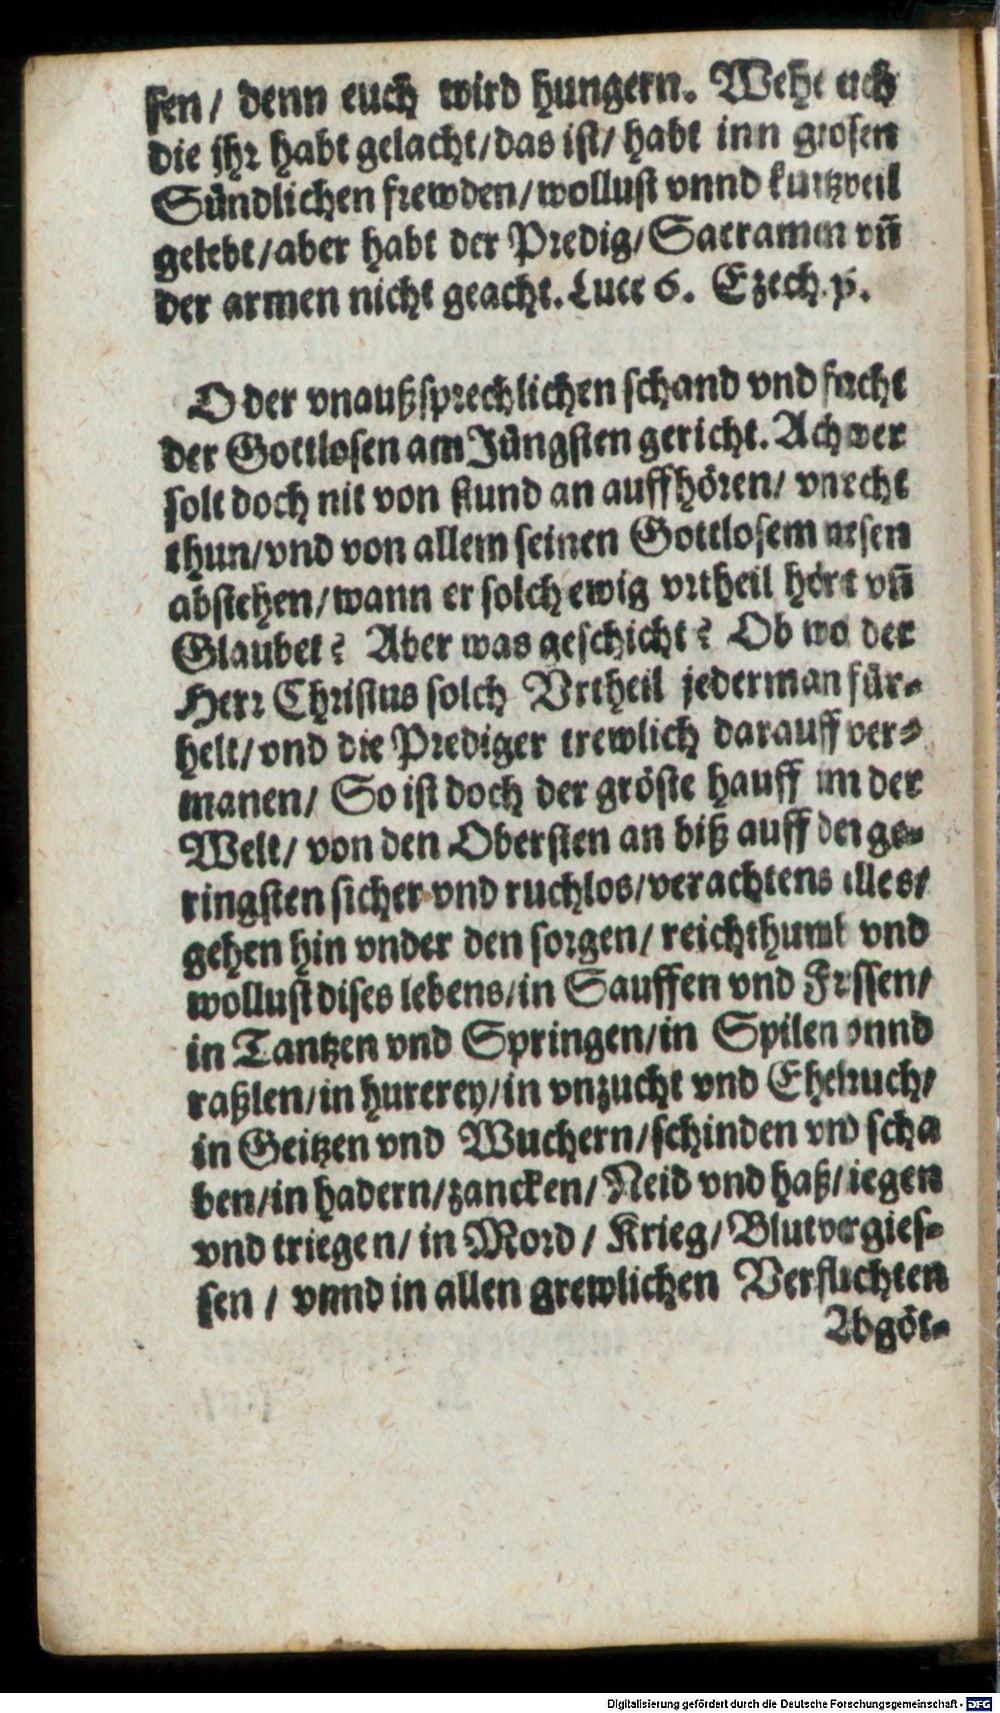 sen/ denn euch wird hungern. Wehe euch
die jhr habt gelacht/das ist/ habt inn grosen
Sündlichen frewden/wollust vnnd kurtzweil
gelebt/aber habt der Predig/Sacrament vñ
der armen nicht geacht. Luce 6. Ezech.
O der vnaußsprechlichen schand vnd forcht
der Gottlosen am Jüngsten gericht. Ach wer
solt doch nit von stund an auffhören/ vnrecht
thun/vnd von allem seinen Gottlosem wesen
abstehen/wann er solch ewig vrtheil hört vñ
Glaubet? Aber was geschicht? Ob wol der
Herr Christus solch Vrtheil jederman für-
helt/vnd die Prediger trewlich darauff ver-
manen/ So ist doch der gröste hauff inn der
Welt/ von den Obersten an biß auff den ge-
ringsten sicher vnd ruchlos/verachtens alles/
gehen hin vnder den sorgen/ reichthumb vnd
wollust dises lebens/in Sauffen vnd Fressen/
in Tantzen vnd Springen/in Spilen vnnd
raßlen/in hurerey/in vnzucht vnd Ehebruch/
in Geitzen vnd Wuchern/schinden vnd scha
ben/in hadern/zancken/Neid vnd haß/liegen
vnd triegen/ in Mord/ Krieg/ Blutvergies-
sen / vnnd in allen grewlichen Verfluchten
Abgöt-
Digitalisierung gefördert durch die Deutsche Forschungsgemeinschaft - DFG